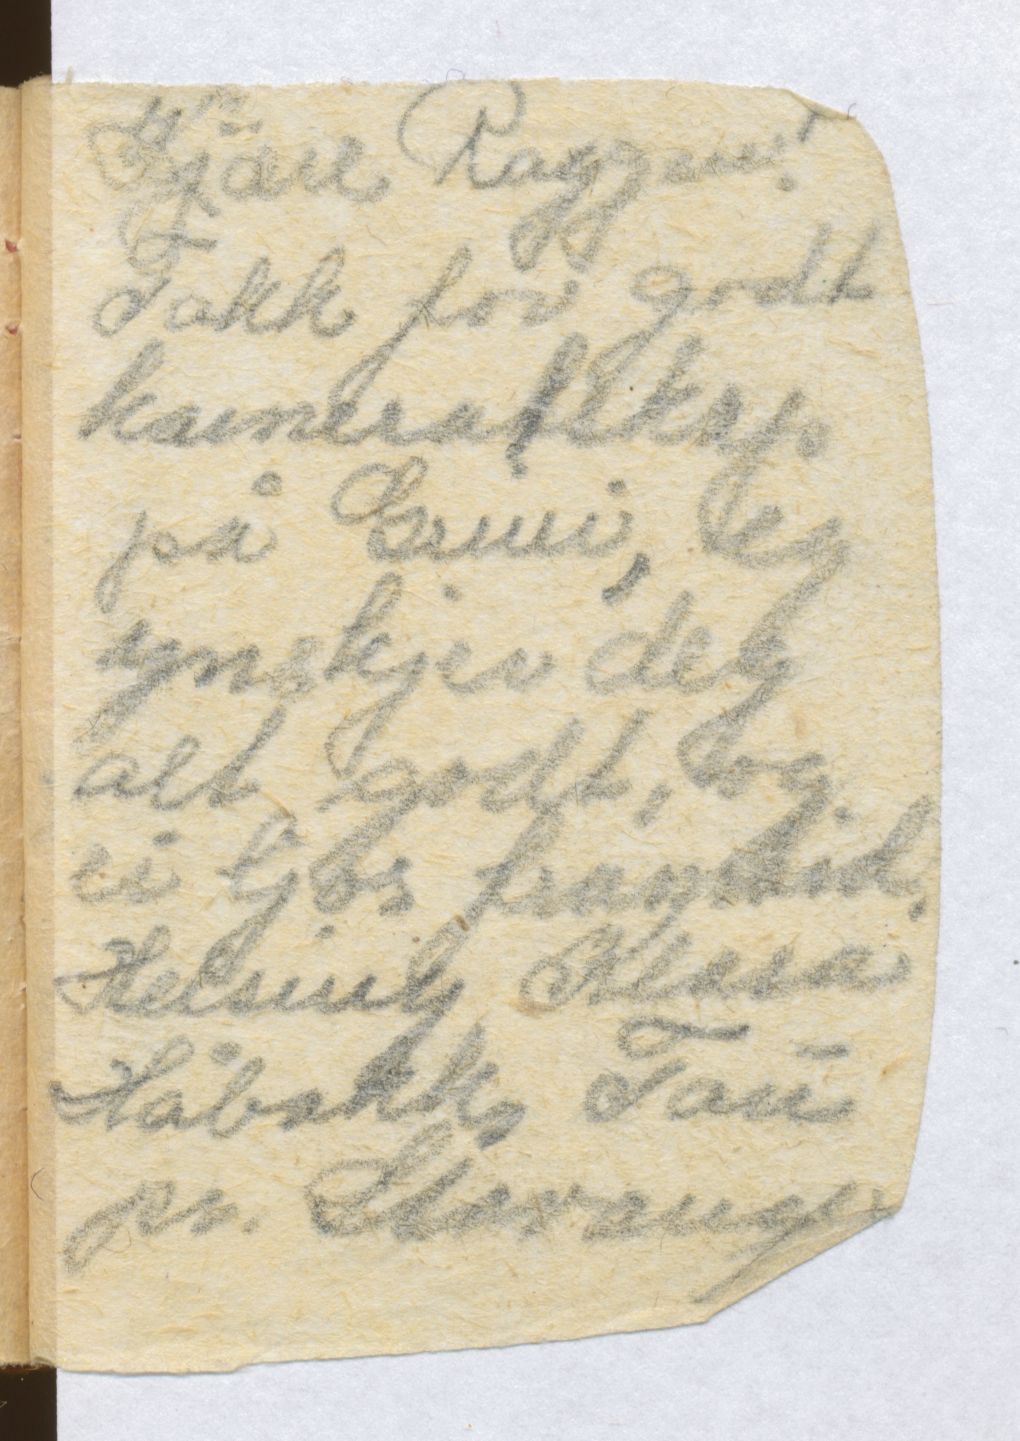 Kjäre Raggen!
Takk for godt
kameratskap
på Grini, Eg
ynskjer deg
alt godt, og
ei ljos framtid,
Helsing Klara
Håbakk, Tau
pr. Stavanger